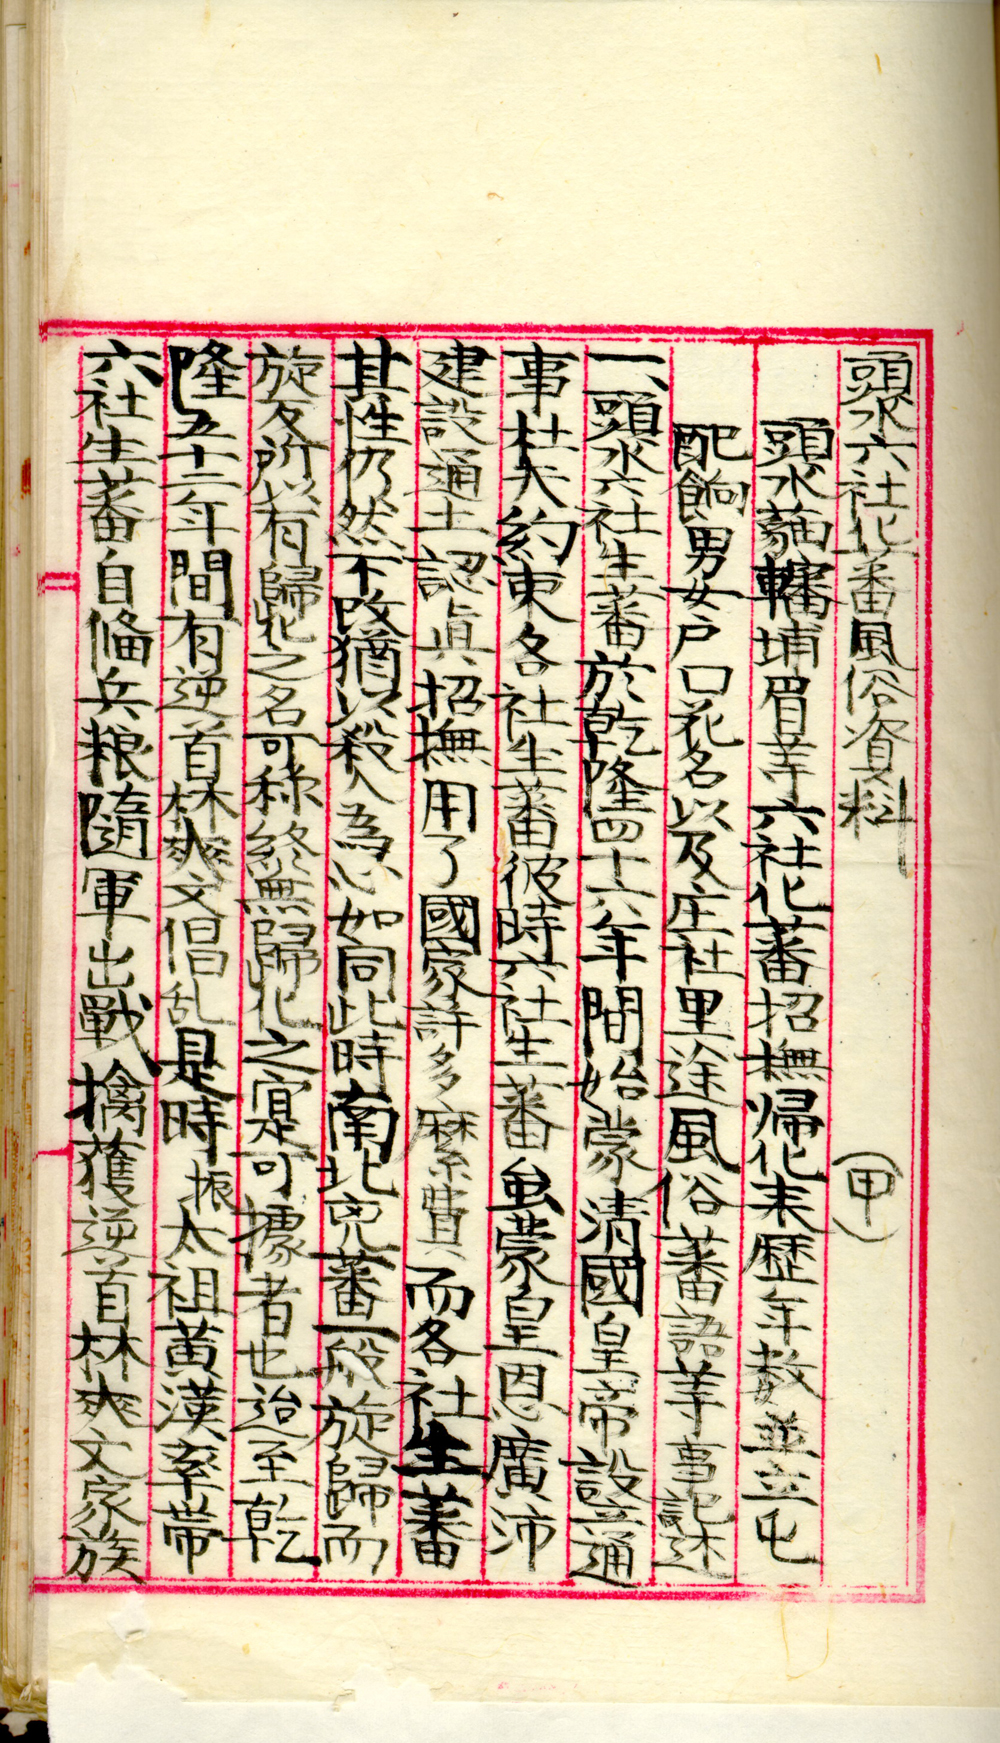 頭水六社化蕃風俗資料 (甲)
頭水猫轄埔眉等六社化蕃招撫帰化来歴年数並立屯
配餉男女戸口花名以及庄社里途風俗蕃語等事記述
一、頭水六社生蕃於乾隆四十六年間始蒙清國皇帝設立通
事杜天約束各社生蕃彼時六社生蕃虽蒙皇恩廣沛
建設通土認真招撫用了國家許多縻費而各社生蕃
其性仍然不改猶以殺人為心如同此時南北兇蕃一般旋歸而
旋反所以有歸化之名可称終無歸化之寔可據者也迨至乾
隆五十二年間有逆首林爽文倡乱是時振太祖黄漢率帶
六社生蕃自備兵粮隨軍出戰擒獲逆首林爽文家族